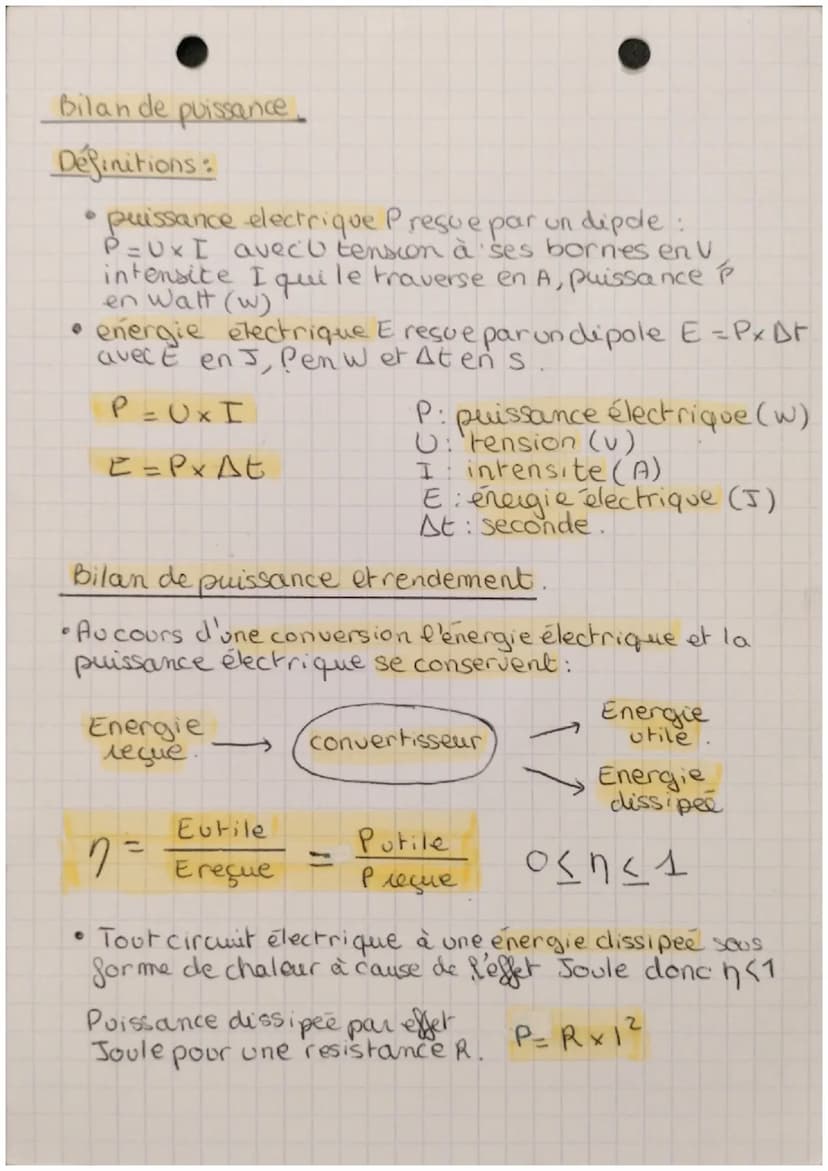 Bilan de puissance.
Définitions :
• puissance electrique P reçue par un dipole :
P = U x I avec U tension à ses bornes en V,
intensite I qui le traverse en A, puissance P
en Watt (W)
• energie électrique E reçue par un dipole E = P x Δt
avec E en J, P en W et Δt en s.
P = U x I
E = P x Δt
P : puissance électrique (W)
U : tension (V)
I : intensite (A)
E : énergie électrique (J)
Δt : seconde.
Bilan de puissance et rendement.
• Au cours d'une conversion l'énergie électrique et la
puissance électrique se conservent :
Energie
reçue.
→
convertisseur
Energie
utile.
Energie
dissipeé
η = Eutile / Ereçue = Putile / Preçue 0 ≤ η ≤ 1
• Tout circuit électrique à une énergie dissipeé sous
forme de chaleur à cause de l'effet Joule donc η < 1
Puissance dissipeé par effet
Joule pour une resistance R.
P = R x I²